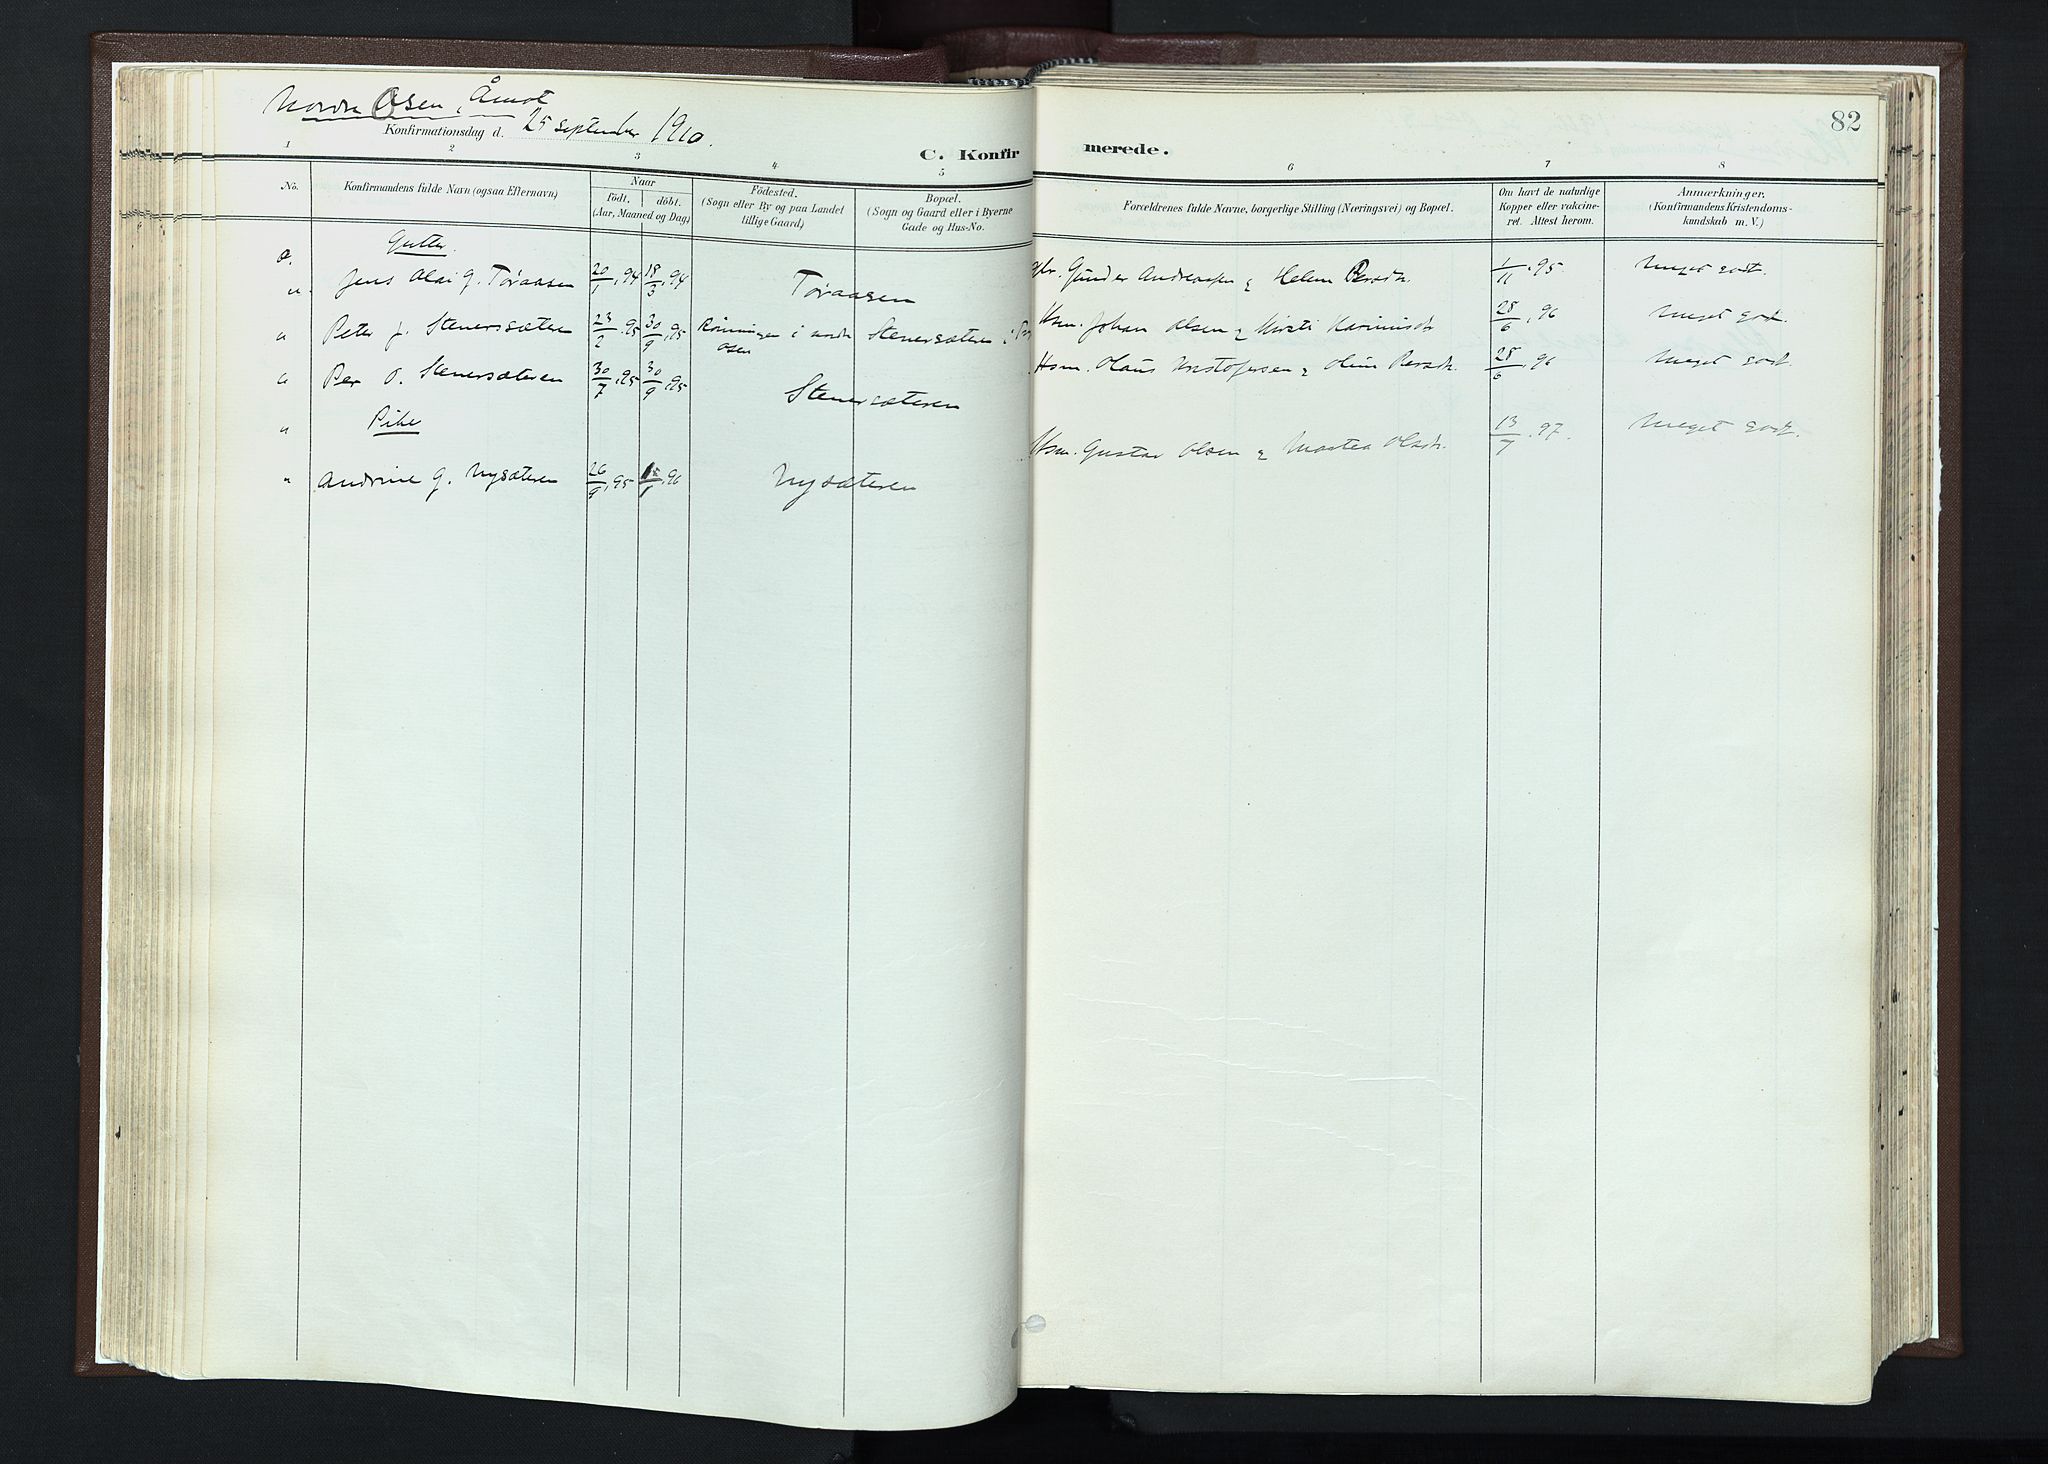 Nordre Osen, Åmot
Konfirmationsdag d. 25 september 1910.
82
C. Konfirmerede.
1 2 3 4 5 6 7 8
No.
Konfirmandens fulde Navn (ogsaa Efternavn)
Naar
födt. döbt.
(Aar, Maaned og Dag)
Födested.
(Sogn eller By og paa Landet
tillige Gaard)
Bopæl.
(Sogn og Gaard eller i Byerne
Gade og Hus-No.
Forældrenes fulde Navne, borgerlige Stilling (Næringsvei) og Bopæl.
Om havt de naturlige
Kopper eller vakcine-
ret. Attest herom.
Anmærkninger.
(Konfirmandens Kristendoms-
kundskab m. V.)
Gutter.
" Jens Olai G. Tøraasen 20/1.94 18/3.94 Tøraasen Gunder Andreassen & Helene Persdr. 1/11.95 Meget godt.
" Peter J. Stenersæteren 23/2.95 30/9.95 Rønningen i nordre Osen Stenersæteren Hsm. Johan Olsen & Kirsti 28/6.96 Meget godt.
" Per O. Stenersæteren 30/7.95 30/9.95 Stenersæteren Hsm. Olaus Kristofersen & Oline Persdr. 28/6.96 Meget godt
" Pike
" Andrine G. Nysæteren 26/9.95 1/1.96 Nysæteren Hsm. Gustav Olsen & Martea Olsdr. 13/7.97. Meget godt.